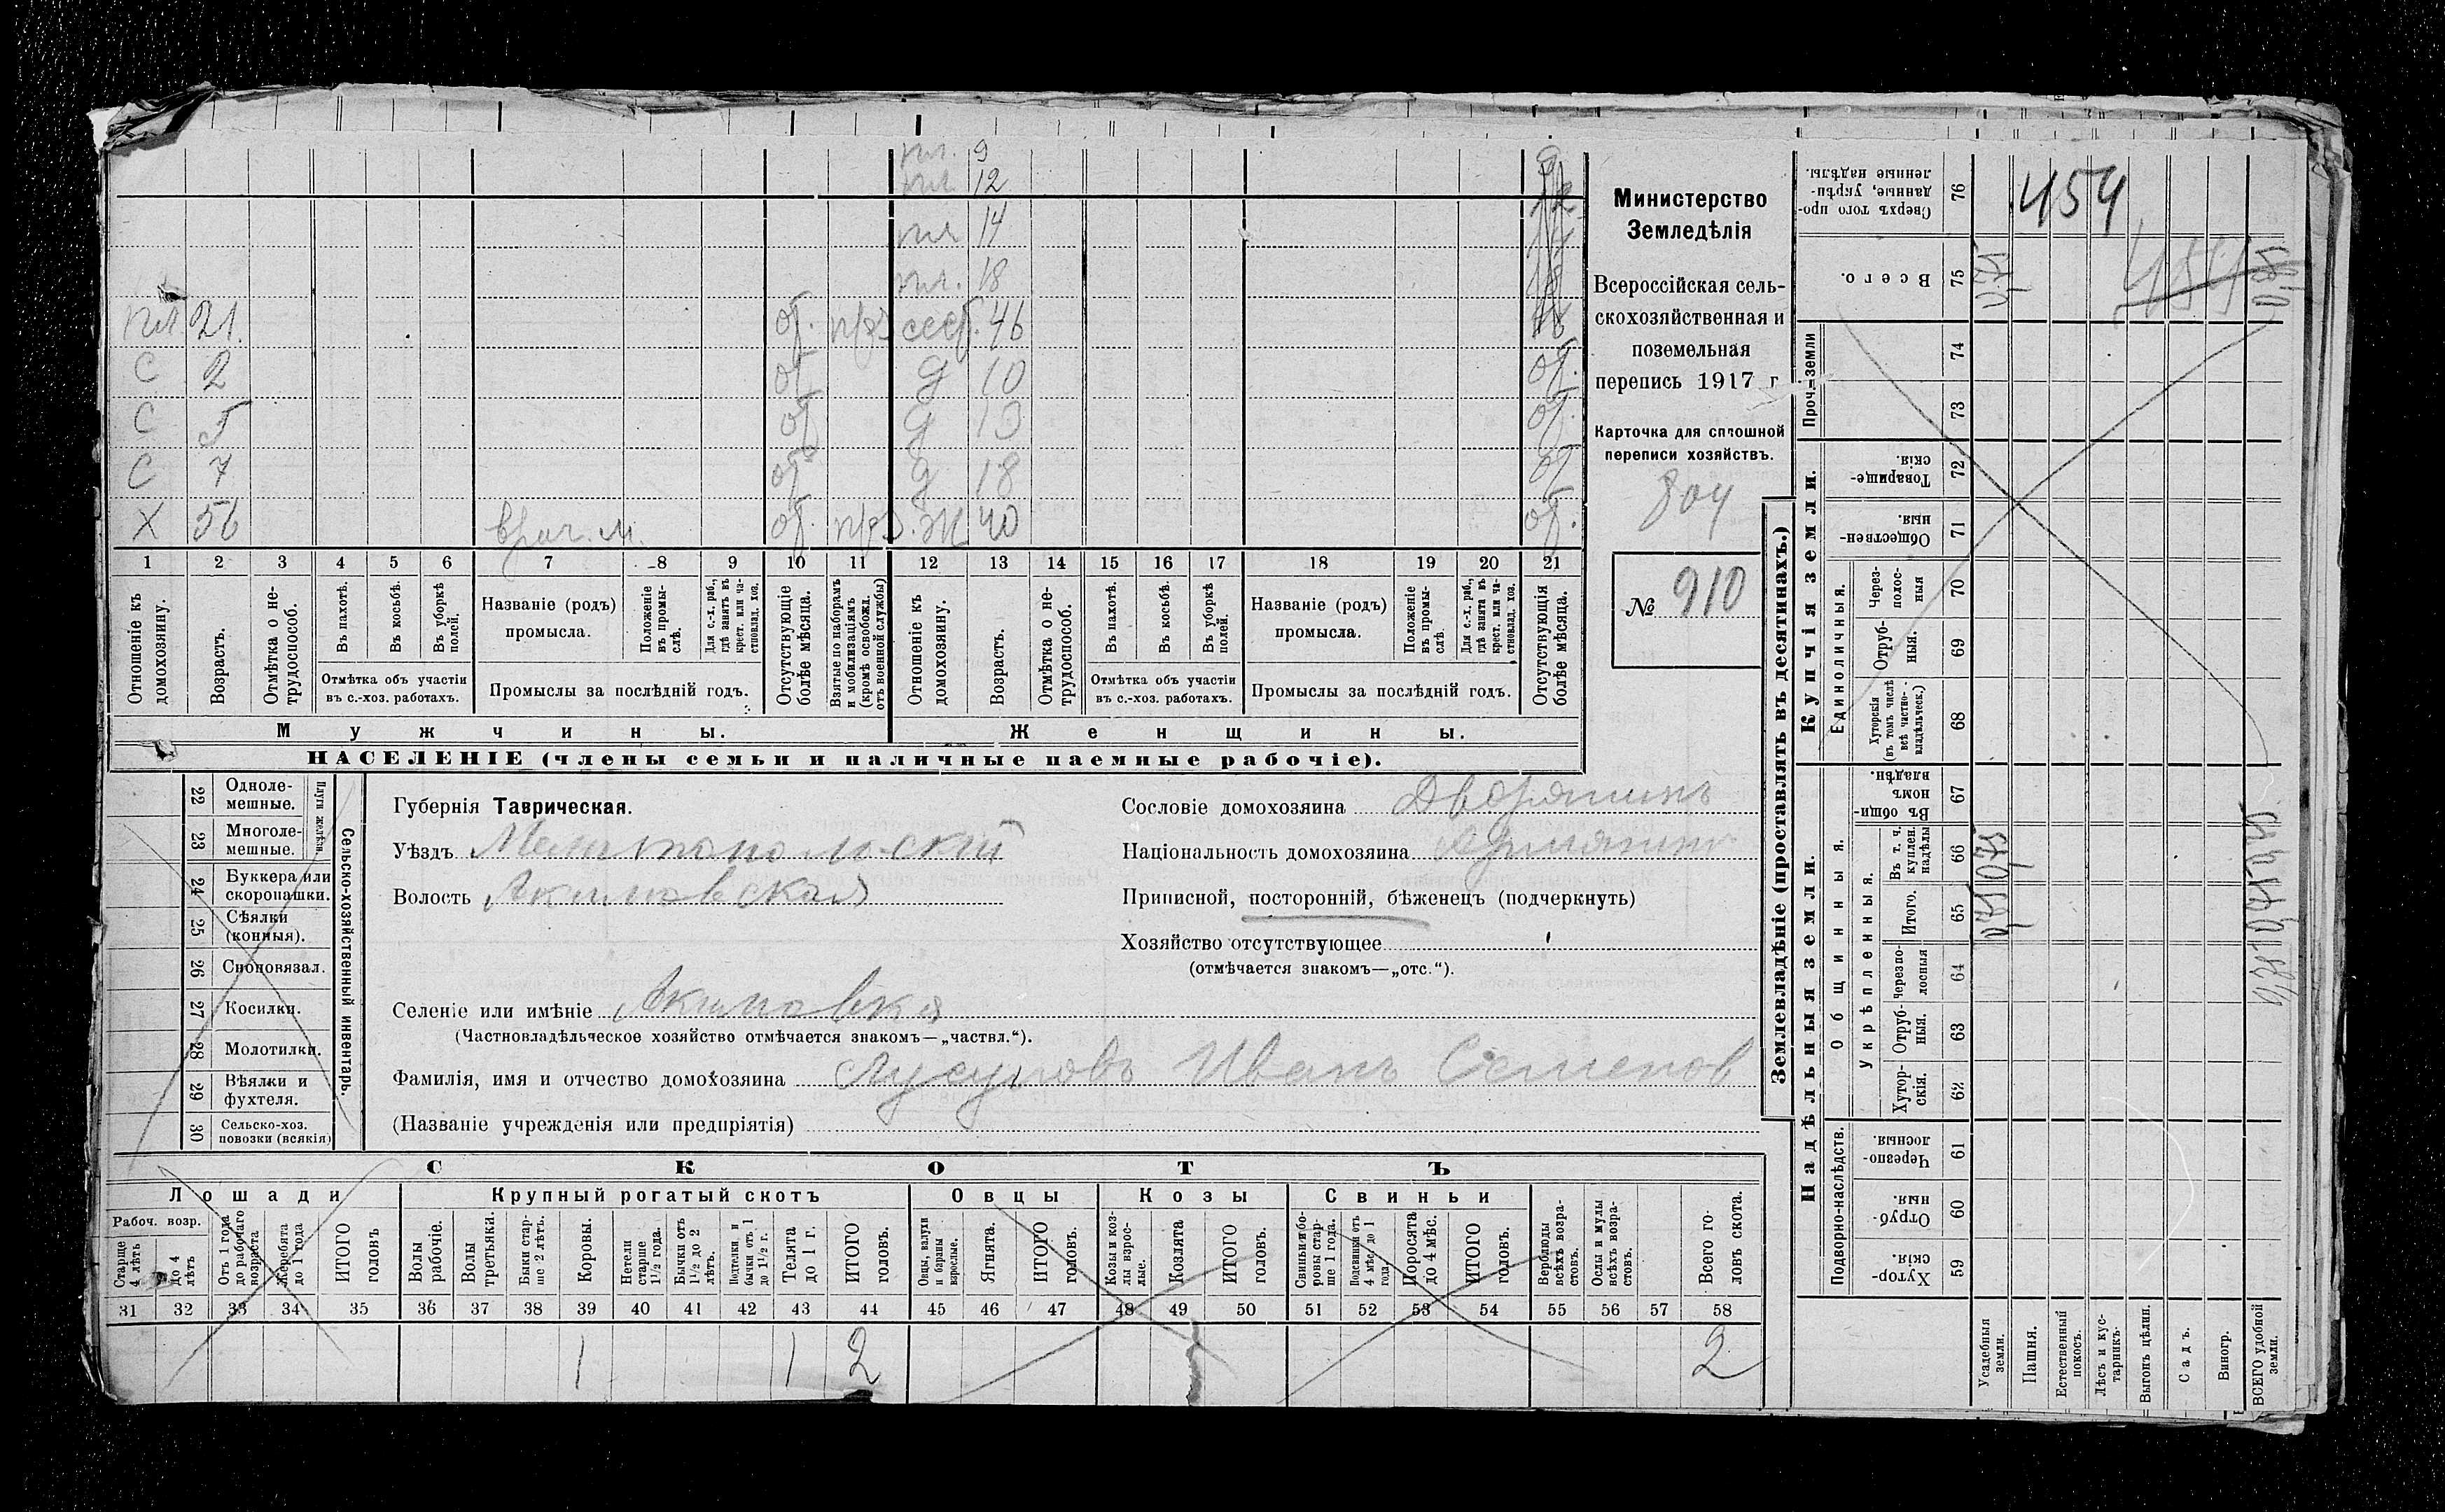 пл. 9
пл 12
пл 14
пл. 18
пл 21. об. сест. 46
С 2 об д 10 об.
С 5 об д 13 об.
С 7 об д 18 об
Х 56 врач. об. Ж 40 об.
1 2 3 4 5 6 7 8 9 10 11 12 13 14 15 16 17 18 19 20 21
Отношеніе къ домохозяину.
Возрастъ.
Отмѣтка о не-трудоспособ.
Въ пахотѣ.
Въ косьбѣ.
Въ уборкѣ полей.
Отмѣтка объ участіи въ с.-хоз. работахъ.
Названіе (родъ) промысла.
Положеніе въ промы-слѣ.
Для с.-х. раб., гдѣ занятъ въ крест. или ча-стновлад. хоз.
Промыслы за послѣдній годъ.
Отсутствующіе болѣе мѣсяца.
Взятые по наборамъ и мобилизаціямъ (кромѣ освобожд. отъ военной службы)
Отношеніе къ домохозяину.
Возрастъ.
Отмѣтка о не-трудоспособ.
Въ пахотѣ.
Въ косьбѣ.
Въ уборкѣ полей.
Отмѣтка объ участіи въ с.-хоз. работахъ.
Названіе (родъ) промысла.
Положеніе въ промы-слѣ.
Для с.-х. раб., гдѣ занята въ крест. или ча-стновлад. хоз.
Промыслы за послѣдній годъ.
Отсутствующія болѣе мѣсяца.
Мужчины.
Женщины.
НАСЕЛЕНІЕ (члены семьи и наличные наемные рабочіе).
Министерство
Земледѣлія
Всероссійская сель-
скохозяйственная и
поземельная
перепись 1917 г
Карточка для сплошной
переписи хозяйствъ.
804
№ 910
22 Одноле-мешные.
23 Многоле-мешные.
Плуги желѣзн.
24 Буккера или скоропашки.
25 Сѣялки (конныя).
26 Сноповязал.
27 Косилки.
28 Молотилки.
29 Вѣялки и фухтеля.
30 Сельско-хоз. повозки (всякія)
Сельско-хозяйственный инвентарь.
Губернія Таврическая.
Уѣздъ Мелитопольскій
Волость Акимовская
Сословіе домохозяина Дворянинъ
Національность домохозяина Армянинъ
Приписной, посторонній, бѣженец (подчеркнуть)
Хозяйство отсутствующее
(отмѣчается знакомъ—„отс.“).
Селеніе или имѣніе Акимовка
(Частновладѣльческое хозяйство отмѣчается знакомъ—„частвл.“).
Фамилія, имя и отчество домохозяина Иванъ Семенов
(Названіе учрежденія или предпріятія)
СКОТЪ
Лошади
Крупный рогатый скотъ
Овцы
Козы
Свиньи
Рабоч. возр.
Старше 4 лѣтъ
до 4 лѣтъ
Отъ 1 года до рабочаго возраста
Жеребята до 1 года
ИТОГО головъ
Волы рабочіе.
Волы третьяки.
Быки стар-ше 2 лѣтъ.
Коровы.
Нетели старше 1½ года.
Бычки отъ 1½ до 2 лѣтъ.
Подтелки и бычки отъ 1 до 1½ г.
Телята до 1 г.
ИТОГО головъ.
Овцы, валухи и бараны взрослые.
Ягнята.
ИТОГО головъ.
Козы и коз-лы взрос-лые.
Козлята
ИТОГО головъ.
Свиньи и бо-ровы стар-ше 1 года.
Подсвинки отъ 4 мѣс. до 1 года
Поросята до 4 мѣс.
ИТОГО головъ.
Верблюды всѣхъ возра-стовъ.
Ослы и мулы всѣхъ возра-стовъ.
Всего го-ловъ скота.
31 32 33 34 35 36 37 38 39 40 41 42 43 44 45 46 47 48 49 50 51 52 53 54 55 56 57 58
1 1 2 2
Землевладѣніе (проставлять въ десятинахъ.)
Купчія земли.
Надѣльныя земли.
Сверхъ того про-данные, укрѣп-ленные надѣлы. 76
454
Всего. 75
Проч. земли
74
73
Товарище-скія. 72
Обществен-ныя. 71
Единоличныя.
Через-полос-ныя 70
Отруб-ныя. 69
Хуторскія (въ томъ числѣ всѣ частно-владѣльческ.) 68
Общинныя.
Въ общи-номъ владѣн. 67
Укрѣпленныя.
Въ т. ч. куплен. надѣлы 66
Итого. 65
Черезпо-лосныя 64
Отруб-ныя. 63
Хутор-скія. 62
Подворно-наслѣдств.
Черезпо-лосныя. 61
Отруб-ныя. 60
Хутор-скія. 59
Усадебныя земли.
Пашня.
Естественный покосъ.
Лѣсъ и кус-тарникъ.
Выгонъ цѣлин.
Садъ.
Виногр.
ВСЕГО удобной земли.